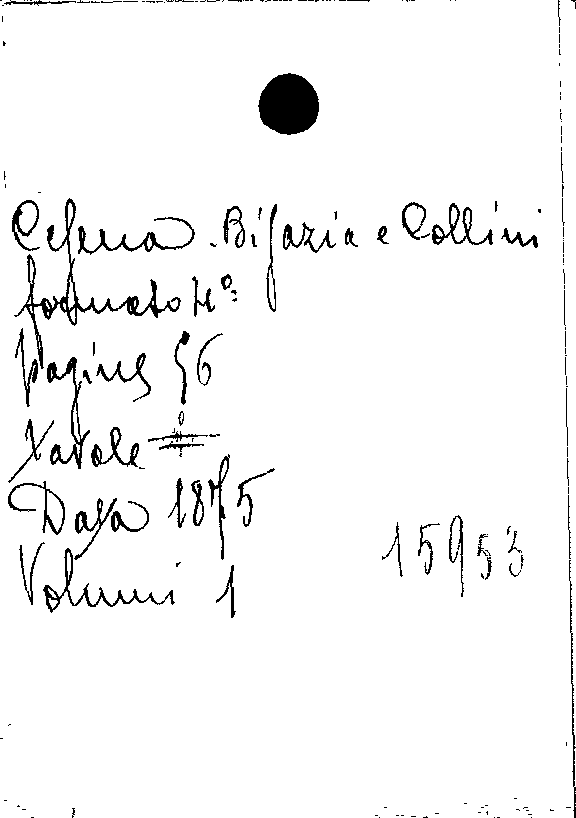 Cesena. Bisazia e Collini
formato 4º
pagine 56
Tavole =
Data 1875
15953
Volumi 1